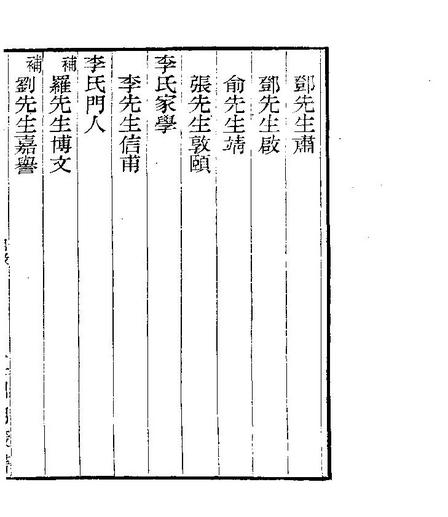 鄧先生肅
鄧先生啟
俞先生靖
張先生敦頤
李氏家學
李先生信甫
李氏門人
補 羅先生博文
補 劉先生嘉譽